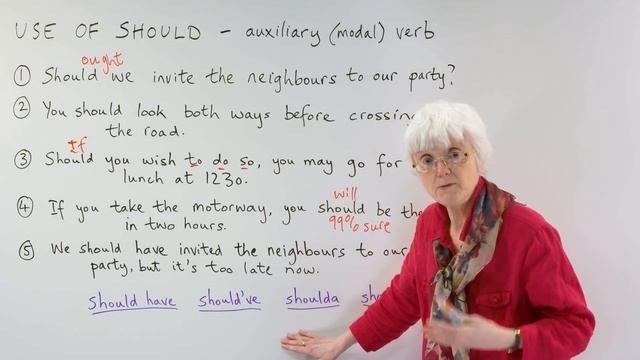 USE OF SHOULD – auxiliary (modal) verb
ought
① Should we invite the neighbours to our party?
② You should look both ways before crossing
the road.
If
③ Should you wish to do so, you may go for
lunch at 1230.
will
④ If you take the motorway, you should be
in two hours. 99% sure
⑤ We should have invited the neighbours to our
party, but it's too late now.
should have should've shoulda